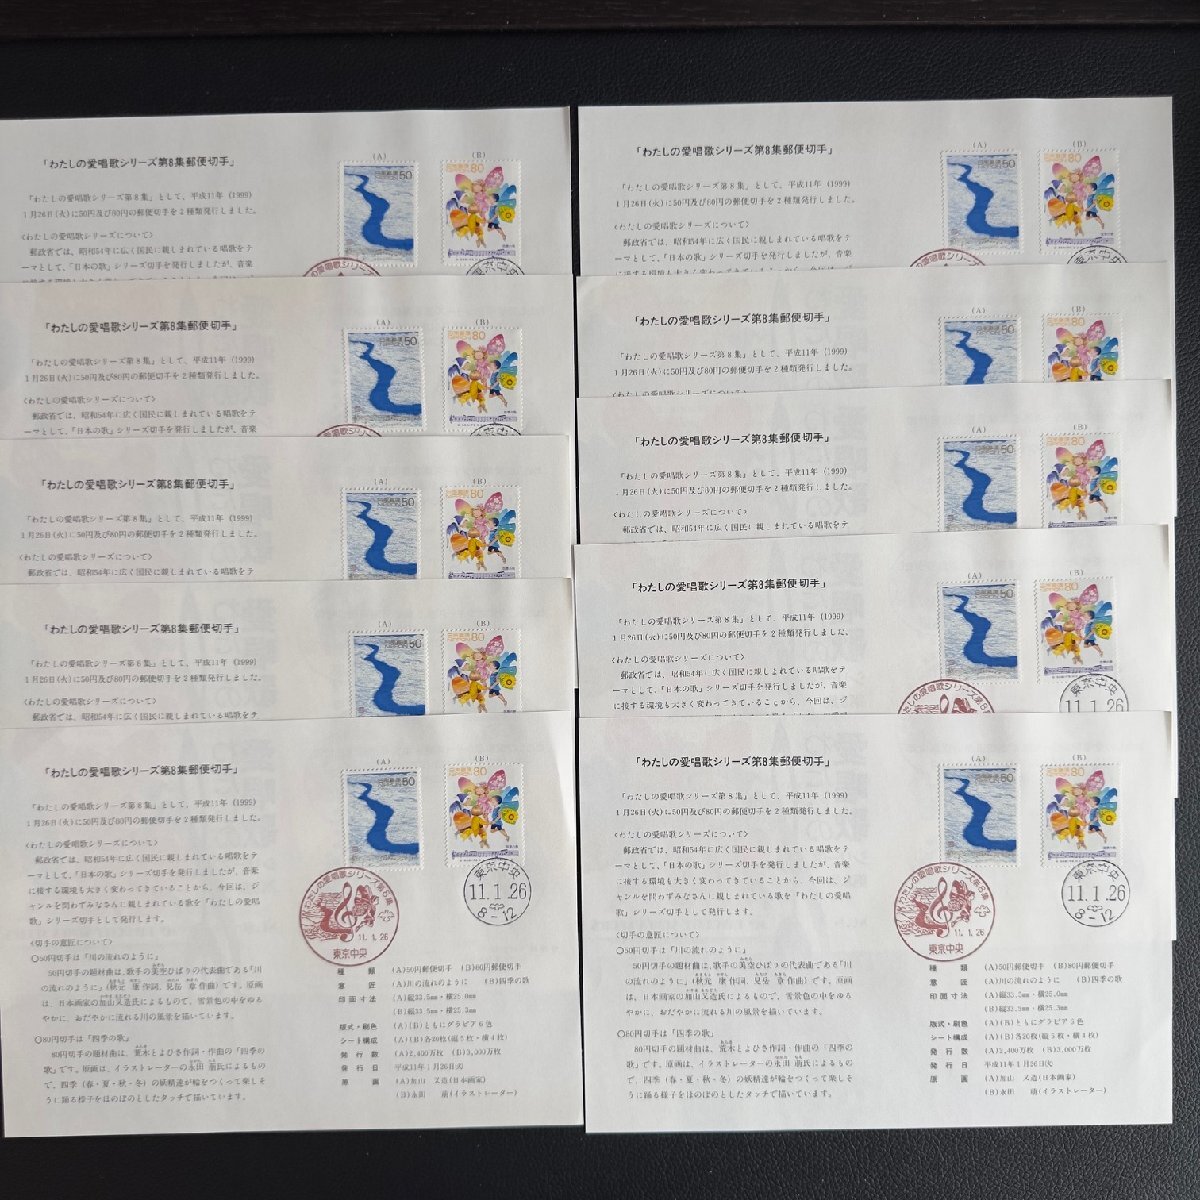 「わたしの愛唱歌シリーズ第8集郵便切手」
(A)
(B)
「わたしの愛唱歌シリーズ第8集」として、平成11年 (1999)
1月26日(火)に50円及び80円の郵便切手を2種類発行しました。
<わたしの愛唱歌シリーズについて>
郵政省では、昭和54年に広く国民に親しまれている唱歌をテ
ーマとして、「日本の歌」シリーズ切手を発行しましたが、音楽
「わたしの愛唱歌シリーズ第8集郵便切手」
(A)
(B)
「わたしの愛唱歌シリーズ第8集」として、平成11年 (1999)
1月26日(火)に50円及び80円の郵便切手を2種類発行しました。
<わたしの愛唱歌シリーズについて>
郵政省では、昭和54年に広く国民に親しまれている唱歌をテ
ーマとして、「日本の歌」シリーズ切手を発行しましたが、音楽
「わたしの愛唱歌シリーズ第8集郵便切手」
(A)
(B)
「わたしの愛唱歌シリーズ第8集」として、平成11年 (1999)
1月26日(火)に50円及び80円の郵便切手を2種類発行しました。
<わたしの愛唱歌シリーズについて>
郵政省では、昭和54年に広く国民に親しまれている唱歌をテ
「わたしの愛唱歌シリーズ第8集郵便切手」
(A)
(B)
「わたしの愛唱歌シリーズ第8集」として、平成11年 (1999)
1月26日(火)に50円及び80円の郵便切手を2種類発行しました。
<わたしの愛唱歌シリーズについて>
郵政省では、昭和54年に広く国民に親しまれている唱歌をテ
「わたしの愛唱歌シリーズ第8集郵便切手」
(A)
(B)
50
80
「わたしの愛唱歌シリーズ第8集」として、平成11年 (1999)
1月26日(火)に50円及び80円の郵便切手を2種類発行しました。
<わたしの愛唱歌シリーズについて>
郵政省では、昭和54年に広く国民に親しまれている唱歌をテ
ーマとして、「日本の歌」シリーズ切手を発行しましたが、音楽
に接する環境も大きく変わってきていることから、今回は、ジ
ャンルを問わずみなさんに親しまれている歌を「わたしの愛唱
歌」シリーズ切手として発行します。
わたしの愛唱歌シリーズ第8集
11.1.26
東京中央
東京中央
11.1.26
8-12
<切手の意匠について>
○50円切手は「川の流れのように」
50円切手の題材曲は、歌手の美空ひばりの代表曲である「川
の流れのように」(秋元 康 作詞、見岳 章 作曲)です。原画
は、日本画家の加山又造氏によるもので、雪景色の中をゆる
やかに、おだやかに流れる川の風景を描いています。
○80円切手は「四季の歌」
80円切手の題材曲は、荒木とよひさ作詞・作曲の「四季の
歌」です。原画は、イラストレーターの永田 萠氏によるもの
で、四季(春・夏・秋・冬)の妖精達が輪をつくって楽しそ
うに踊る様子をほのぼのとしたタッチで描いています。
種類 (A)50円郵便切手 (B)80円郵便切手
意匠 (A)川の流れのように (B)四季の歌
印面寸法 (A)縦33.5mm・横25.0mm
版式・刷色 (A)(B)ともにグラビア6色
シート構成 (A)(B)各20枚(縦5枚・横4枚)
発行数 (A)2,400万枚 (B)3,000万枚
発行日 平成11年1月26日(火)
原画 (A)加山 又造(日本画家)
(B)永田 萠(イラストレーター)
「わたしの愛唱歌シリーズ第8集郵便切手」
(A)
(B)
「わたしの愛唱歌シリーズ第8集」として、平成11年 (1999)
1月26日(火)に50円及び80円の郵便切手を2種類発行しました。
<わたしの愛唱歌シリーズについて>
郵政省では、昭和54年に広く国民に親しまれている唱歌をテ
ーマとして、「日本の歌」シリーズ切手を発行しましたが、音楽
「わたしの愛唱歌シリーズ第8集郵便切手」
(A)
(B)
「わたしの愛唱歌シリーズ第8集」として、平成11年 (1999)
1月26日(火)に50円及び80円の郵便切手を2種類発行しました。
「わたしの愛唱歌シリーズ第8集郵便切手」
(A)
(B)
「わたしの愛唱歌シリーズ第8集」として、平成11年 (1999)
1月26日(火)に50円及び80円の郵便切手を2種類発行しました。
<わたしの愛唱歌シリーズについて>
郵政省では、昭和54年に広く国民に親しまれている唱歌をテ
「わたしの愛唱歌シリーズ第8集郵便切手」
(A)
(B)
「わたしの愛唱歌シリーズ第8集」として、平成11年 (1999)
1月26日(火)に50円及び80円の郵便切手を2種類発行しました。
<わたしの愛唱歌シリーズについて>
郵政省では、昭和54年に広く国民に親しまれている唱歌をテ
ーマとして、「日本の歌」シリーズ切手を発行しましたが、音楽
に接する環境も大きく変わってきていることから、今回は、ジ
東京中央
11.1.26
「わたしの愛唱歌シリーズ第8集郵便切手」
(A)
(B)
50
80
「わたしの愛唱歌シリーズ第8集」として、平成11年 (1999)
1月26日(火)に50円及び80円の郵便切手を2種類発行しました。
<わたしの愛唱歌シリーズについて>
郵政省では、昭和54年に広く国民に親しまれている唱歌をテ
ーマとして、「日本の歌」シリーズ切手を発行しましたが、音楽
に接する環境も大きく変わってきていることから、今回は、ジ
ャンルを問わずみなさんに親しまれている歌を「わたしの愛唱
歌」シリーズ切手として発行します。
わたしの愛唱歌シリーズ第8集
11.1.26
東京中央
東京中央
11.1.26
8-12
<切手の意匠について>
○50円切手は「川の流れのように」
50円切手の題材曲は、歌手の美空ひばりの代表曲である「川
の流れのように」(秋元 康 作詞、見岳 章 作曲)です。原画
は、日本画家の加山又造氏によるもので、雪景色の中をゆる
やかに、おだやかに流れる川の風景を描いています。
○80円切手は「四季の歌」
80円切手の題材曲は、荒木とよひさ作詞・作曲の「四季の
歌」です。原画は、イラストレーターの永田 萠氏によるもの
で、四季(春・夏・秋・冬)の妖精達が輪をつくって楽しそ
うに踊る様子をほのぼのとしたタッチで描いています。
種類 (A)50円郵便切手 (B)80円郵便切手
意匠 (A)川の流れのように (B)四季の歌
印面寸法
版式・刷色
シート構成 (A)(B)各20枚(縦5枚・横4枚)
発行数 (A)2,400万枚 (B)3,000万枚
発行日 平成11年1月26日(火)
原画 (A)加山 又造(日本画家)
(B)永田 萠(イラストレーター)